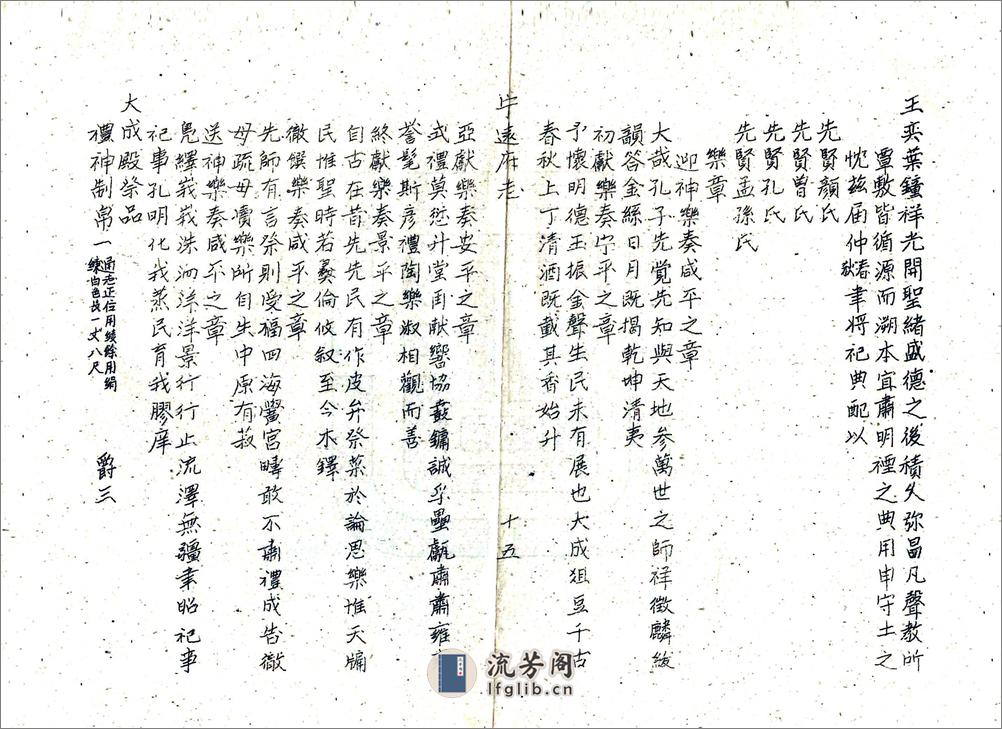 王奕葉鐘祥光開聖緒盛德之後積久弥昌凡聲教所
覃敷皆循源而溯本宜肅明禋之典用申守土之
忱茲届仲春秋聿將祀典配以
先賢顏氏
先賢曾氏
先賢孔氏
先賢孟孫氏
樂章
迎神樂奏咸平之章
大哉孔子先覺先知與天地参萬世之師祥徵麟紱
韻答金絲日月既揭乾坤清夷
初獻樂奏宁平之章
予懷明德玉振金聲生民未有展也大成俎豆千古
春秋上丁清酒既載其香始升
遠府志
十五
亞獻樂奏安平之章
式禮莫愆升堂再献響協鼖鏞誠孚罍甒肅肅雍
譽髦斯彦禮陶樂淑相觀而善
終獻樂奏景平之章
自古在昔先民有作皮弁祭菜於論思樂惟天牖
民惟聖時若彝倫攸叙至今木鐸
徹饌樂奏咸平之章
先師有言祭則受福四海黌宮疇敢不肅禮成告徹
毋疏毋瀆樂所自生中原有菽
送神樂奏咸平之章
鳧繹峩峩洙泗洋洋景行行止流澤無疆聿昭祀事
祀事孔明化我蒸民育我膠庠
大成殿祭品
禮神制帛一 通志正位用綾餘用絹 練白色長一丈八尺 爵三
流芳阁
lfglib.cn